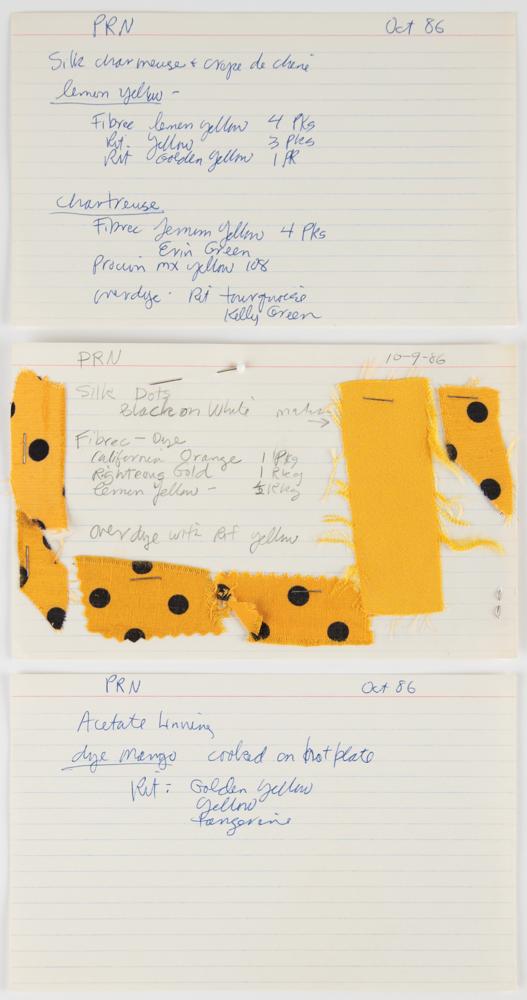 PRN Oct 86
Silk charmeuse & Crepe de chine
lemon yellow -
Fibrec lemon yellow 4 Pks
Rit. yellow 3 Pkgs
Rit Golden yellow 1 PK
Chartreuse
Fibrec lemon yellow 4 Pks
Erin Green
Procion mx yellow 108
overdye - Rit turquoise
Kelly Green
PRN 10-9-86
Silk Dots
Black on White match →
Fibrec - Dye
California Orange 1 Pkg
Righteous Gold 1 Pkg
lemon yellow - ½ Pkg
Over dye with Rit yellow
PRN Oct 86
Acetate Linning
dye mango cooked on hot plate
Rit: Golden yellow
yellow
Tangerine